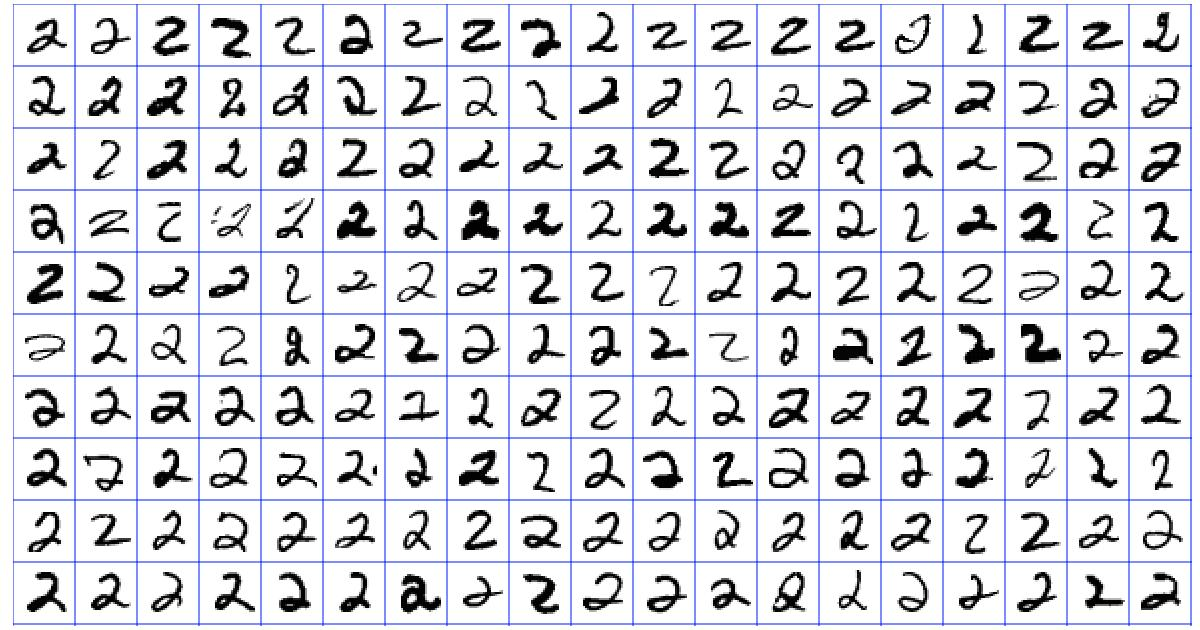 2 2 2 2 2 2 2 2 2 2 2 2 2 2 2 2 2 2 2
2 2 2 2 2 2 2 2 2 2 2 2 2 2 2 2 2 2 2
2 2 2 2 2 2 2 2 2 2 2 2 2 2 2 2 2 2 2
2 2 2 2 2 2 2 2 2 2 2 2 2 2 2 2 2 2 2
2 2 2 2 2 2 2 2 2 2 2 2 2 2 2 2 2 2 2
2 2 2 2 2 2 2 2 2 2 2 2 2 2 2 2 2 2 2
2 2 2 2 2 2 2 2 2 2 2 2 2 2 2 2 2 2 2
2 2 2 2 2 2 2 2 2 2 2 2 2 2 2 2 2 2 2
2 2 2 2 2 2 2 2 2 2 2 2 2 2 2 2 2 2 2
2 2 2 2 2 2 2 2 2 2 2 2 2 2 2 2 2 2 2